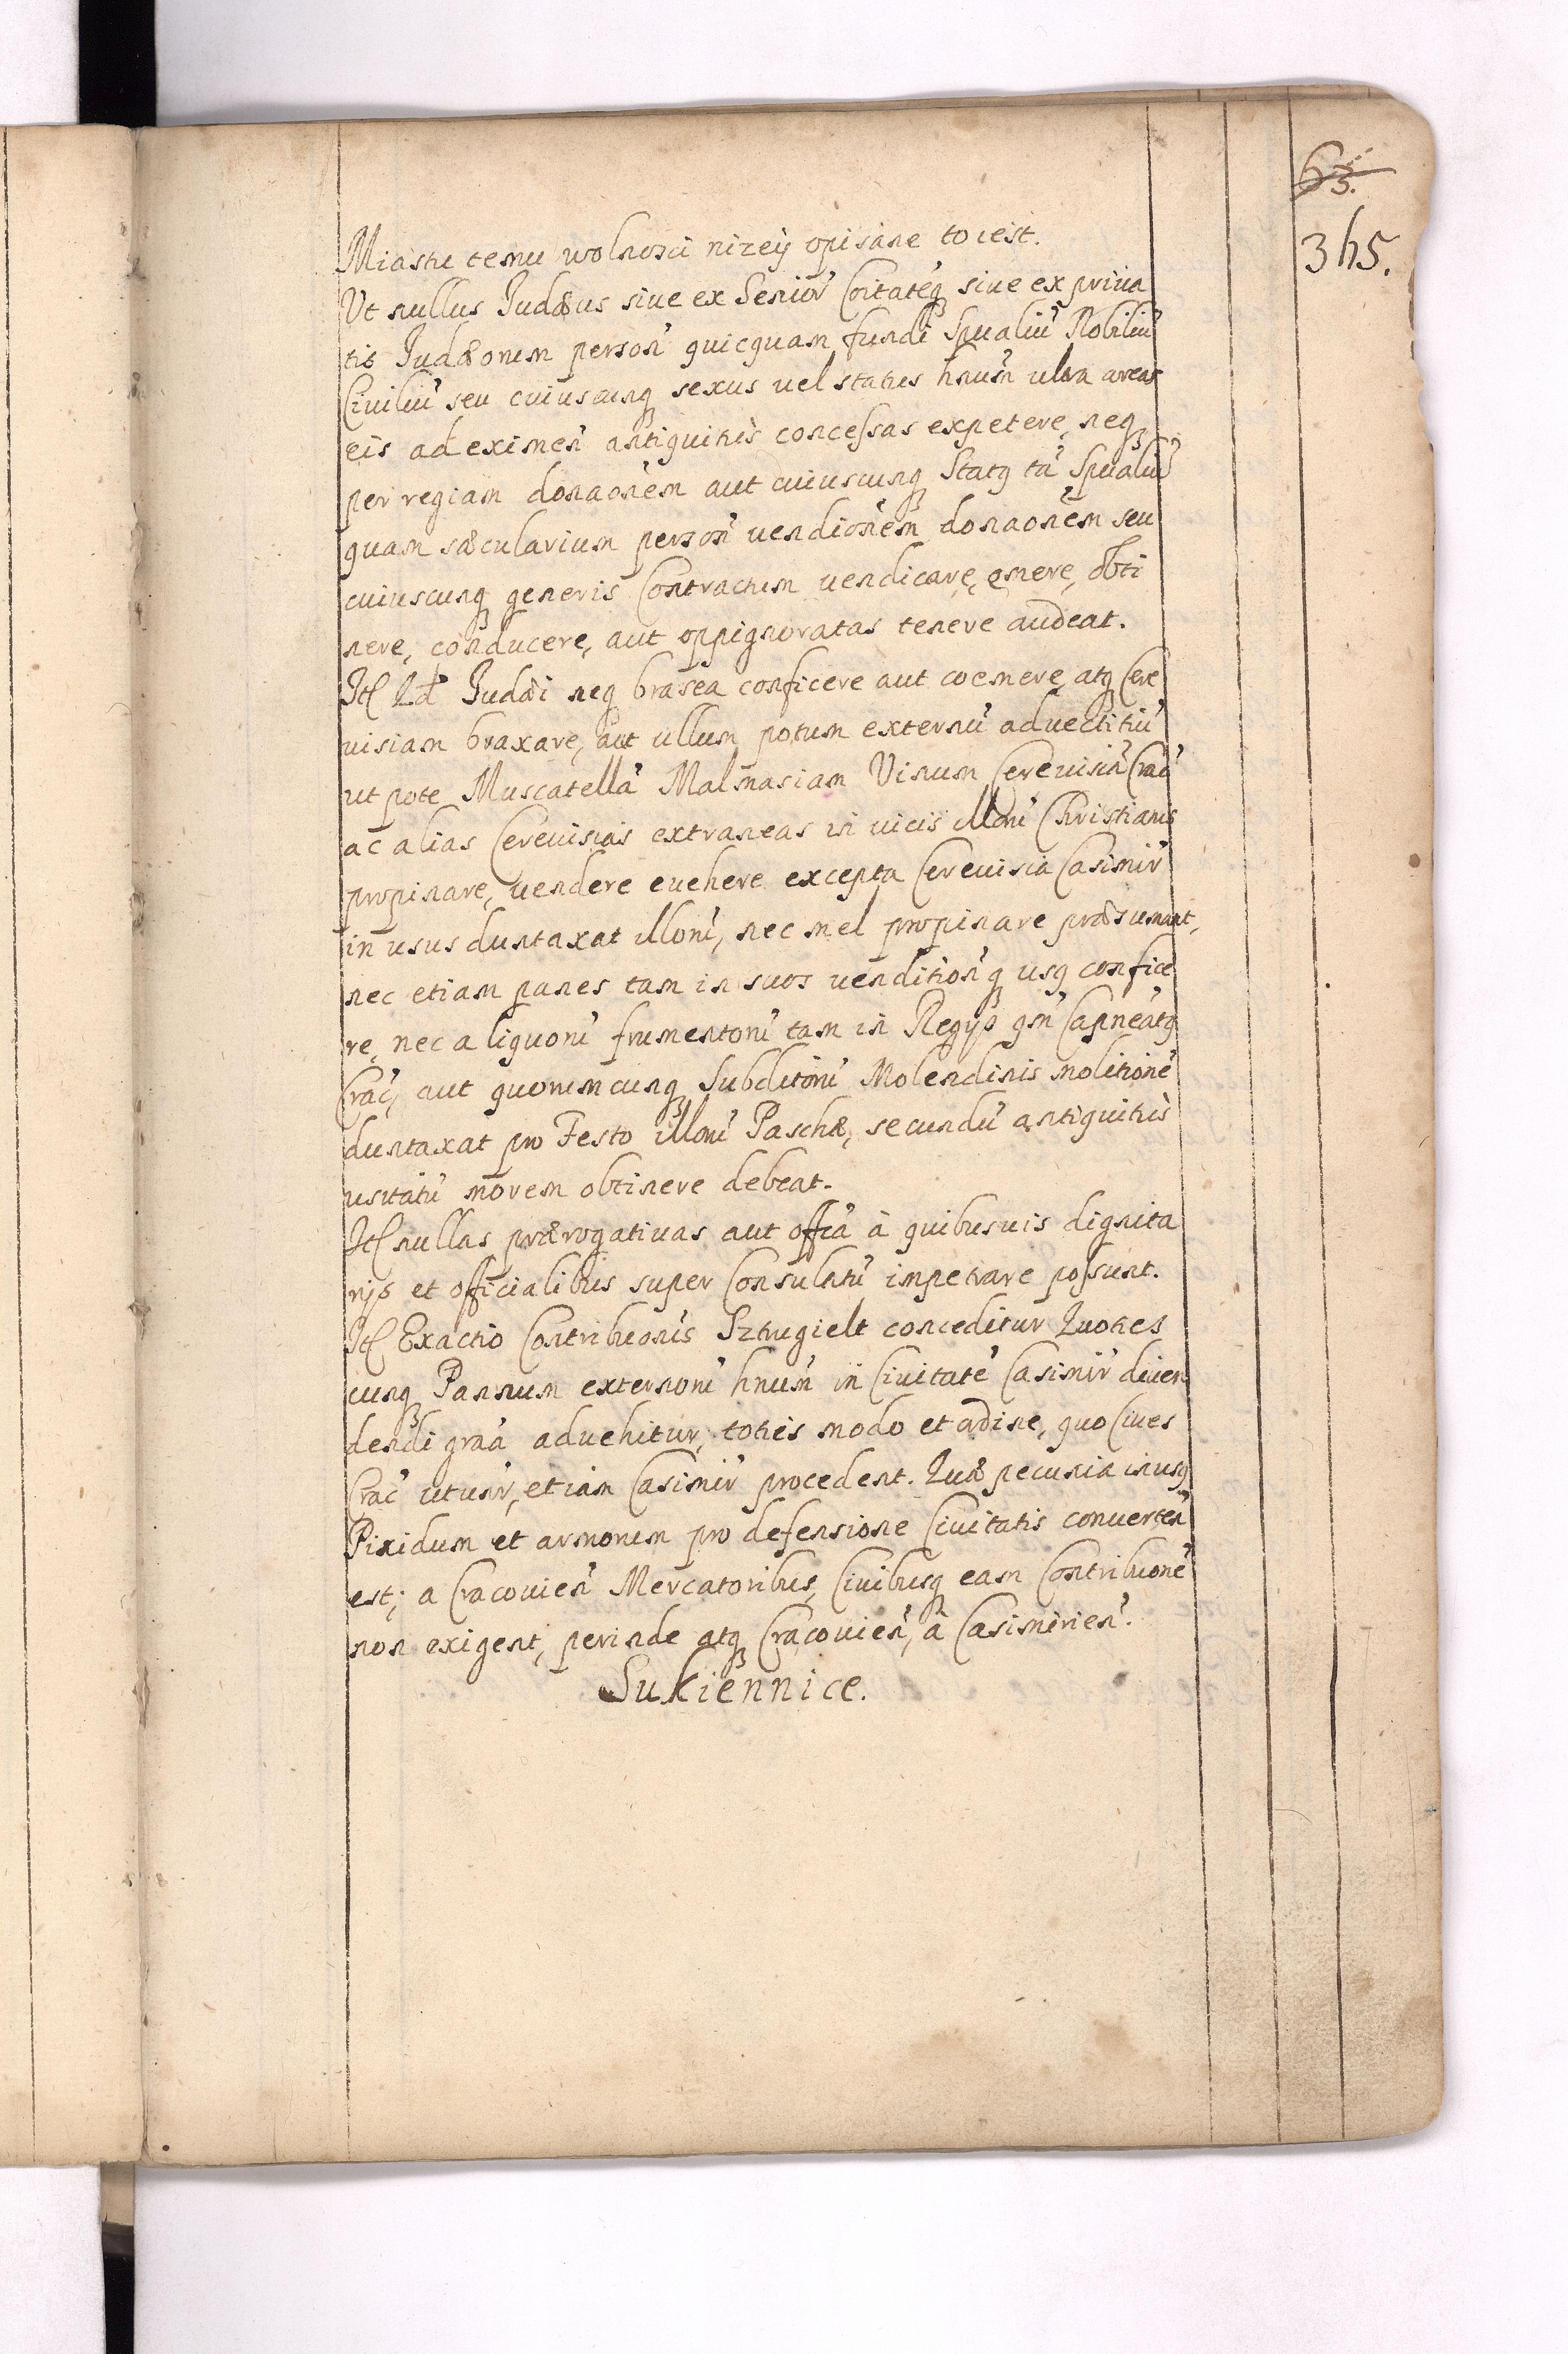 63.
345.
Miastu temu wolnosci nizeÿ opisane to iest.
Ut nullus Judæus siue ex Senior̃ Cõitateq̃ȝ siue ex priua
tis Judæorum person̄ quicquam fundi Sp̃ualiū Nobiliū
Ciuiliū seu cuiuscunqȝ sexus uel status hnũm ultra areas
eis ad eximen̄ antiquitùs concessas expetere, neqȝ
per regiam donãonem aut cuiuscunqȝ Statq tã Sp̃ualiū
quam sæcularium person̄ uendiõnem donãonem seu
cuiuscunqȝ generis Contractum uendicare, emere, obti
nere, conducere, aut oppignoratas tenere audeat.
Itẽ Judæi neqȝ brasea conficere aut coemere atqȝ Cere
uisiam braxare, aut ullum potum externū aduectitiū
ut pote Muscatellã Malmasiam Vinum Cereuisiã Crac̃
ac alias Cereuisias extraneas in uicis illorũ Christianis
propinare, uendere euehere excepta Cereuisia Casimir̃
in usus duntaxat illorũ, nec mel propinare præsumant,
nec etiam panes tam in suos uenditionq̃ȝ usq confice
re, nec aliquorũ frumentorũ tam in Regijs
Crac̃, aut quorumcunqȝ Subditorũ Molendinis molitionẽ
duntaxat pro Festo illorũ Paschæ, secundũ antiquitùs
usitatũ morem obtinere debeat.
Itẽ nullas prærogatiuas aut offĩa à quibusuis dignita
rijs et officialibus super Consulatũ impetrare possunt.
Itẽ Exactio Contribuõnis Sztrugielt conceditur Quoties
cunqȝ Pannum externorũ hnũm in Ciuitatẽ Casimir̃ diuen
dendi grãa aduehitur, toties modo et ordine, quo Ciues
Crac̃ utunr̃, etiam Casimir̃ procedent. Quæ pecunia in usq
Pixidum et armorum pro defensione Ciuitatis conuerten̄
est; a Cracouien̄ Mercatoribus, Ciuibusqȝ eam Contribuõnẽ
non exigent, perinde atqȝ Cracouien̄, à Casimirien̄.
Sukiennice.